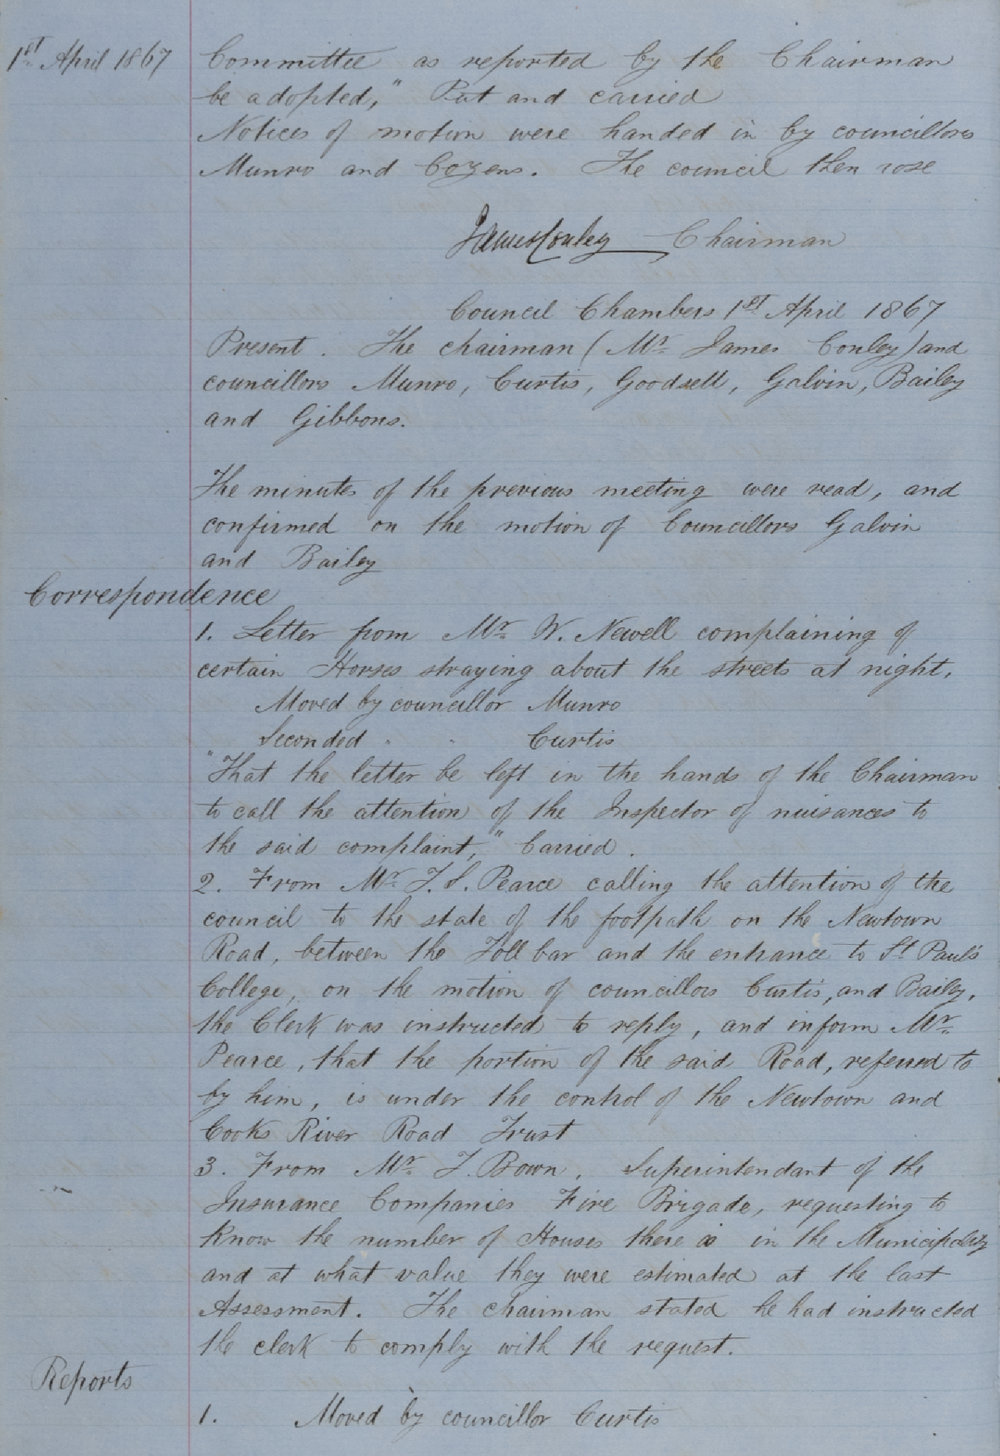 1st April 1867
Committee as reported by the Chairman
be adopted," Put and carried
Notices of motion were handed in by councillors
Munro and Cozens. The council then rose
James Conley Chairman
Council Chambers 1st April 1867
Present. The chairman (Mr James Conley) and
councillors Munro, Curtis, Goodsell, Galvin, Bailey
and Gibbons.
The minutes of the previous meeting were read, and
confirmed on the motion of Councillors Galvin
and Bailey
Correspondence
1. Letter from Mr W. Newell complaining of
certain Horses straying about the streets at night.
Moved by councillor Munro
Seconded " " Curtis
"That the letter be left in the hands of the Chairman
to call the attention of the Inspector of nuisances to
the said complaint," Carried.
2. From Mr T. S. Pearce calling the attention of the
council to the state of the footpath on the Newtown
Road, between the Toll bar and the entrance to St Paul's
College, on the motion of councillors Curtis, and Bailey,
the Clerk was instructed to reply, and inform Mr
Pearce, that the portion of the said Road, referred to
by him, is under the control of the Newtown and
Cooks River Road Trust
3. From Mr T. Bown, Superintendant of the
Insurance Companies Fire Brigade, requesting to
know the number of Houses there is in the Municipality
and at what value they were estimated at the last
Assessment. The chairman stated he had instructed
the clerk to comply with the request.
Reports
1. Moved by councillor Curtis